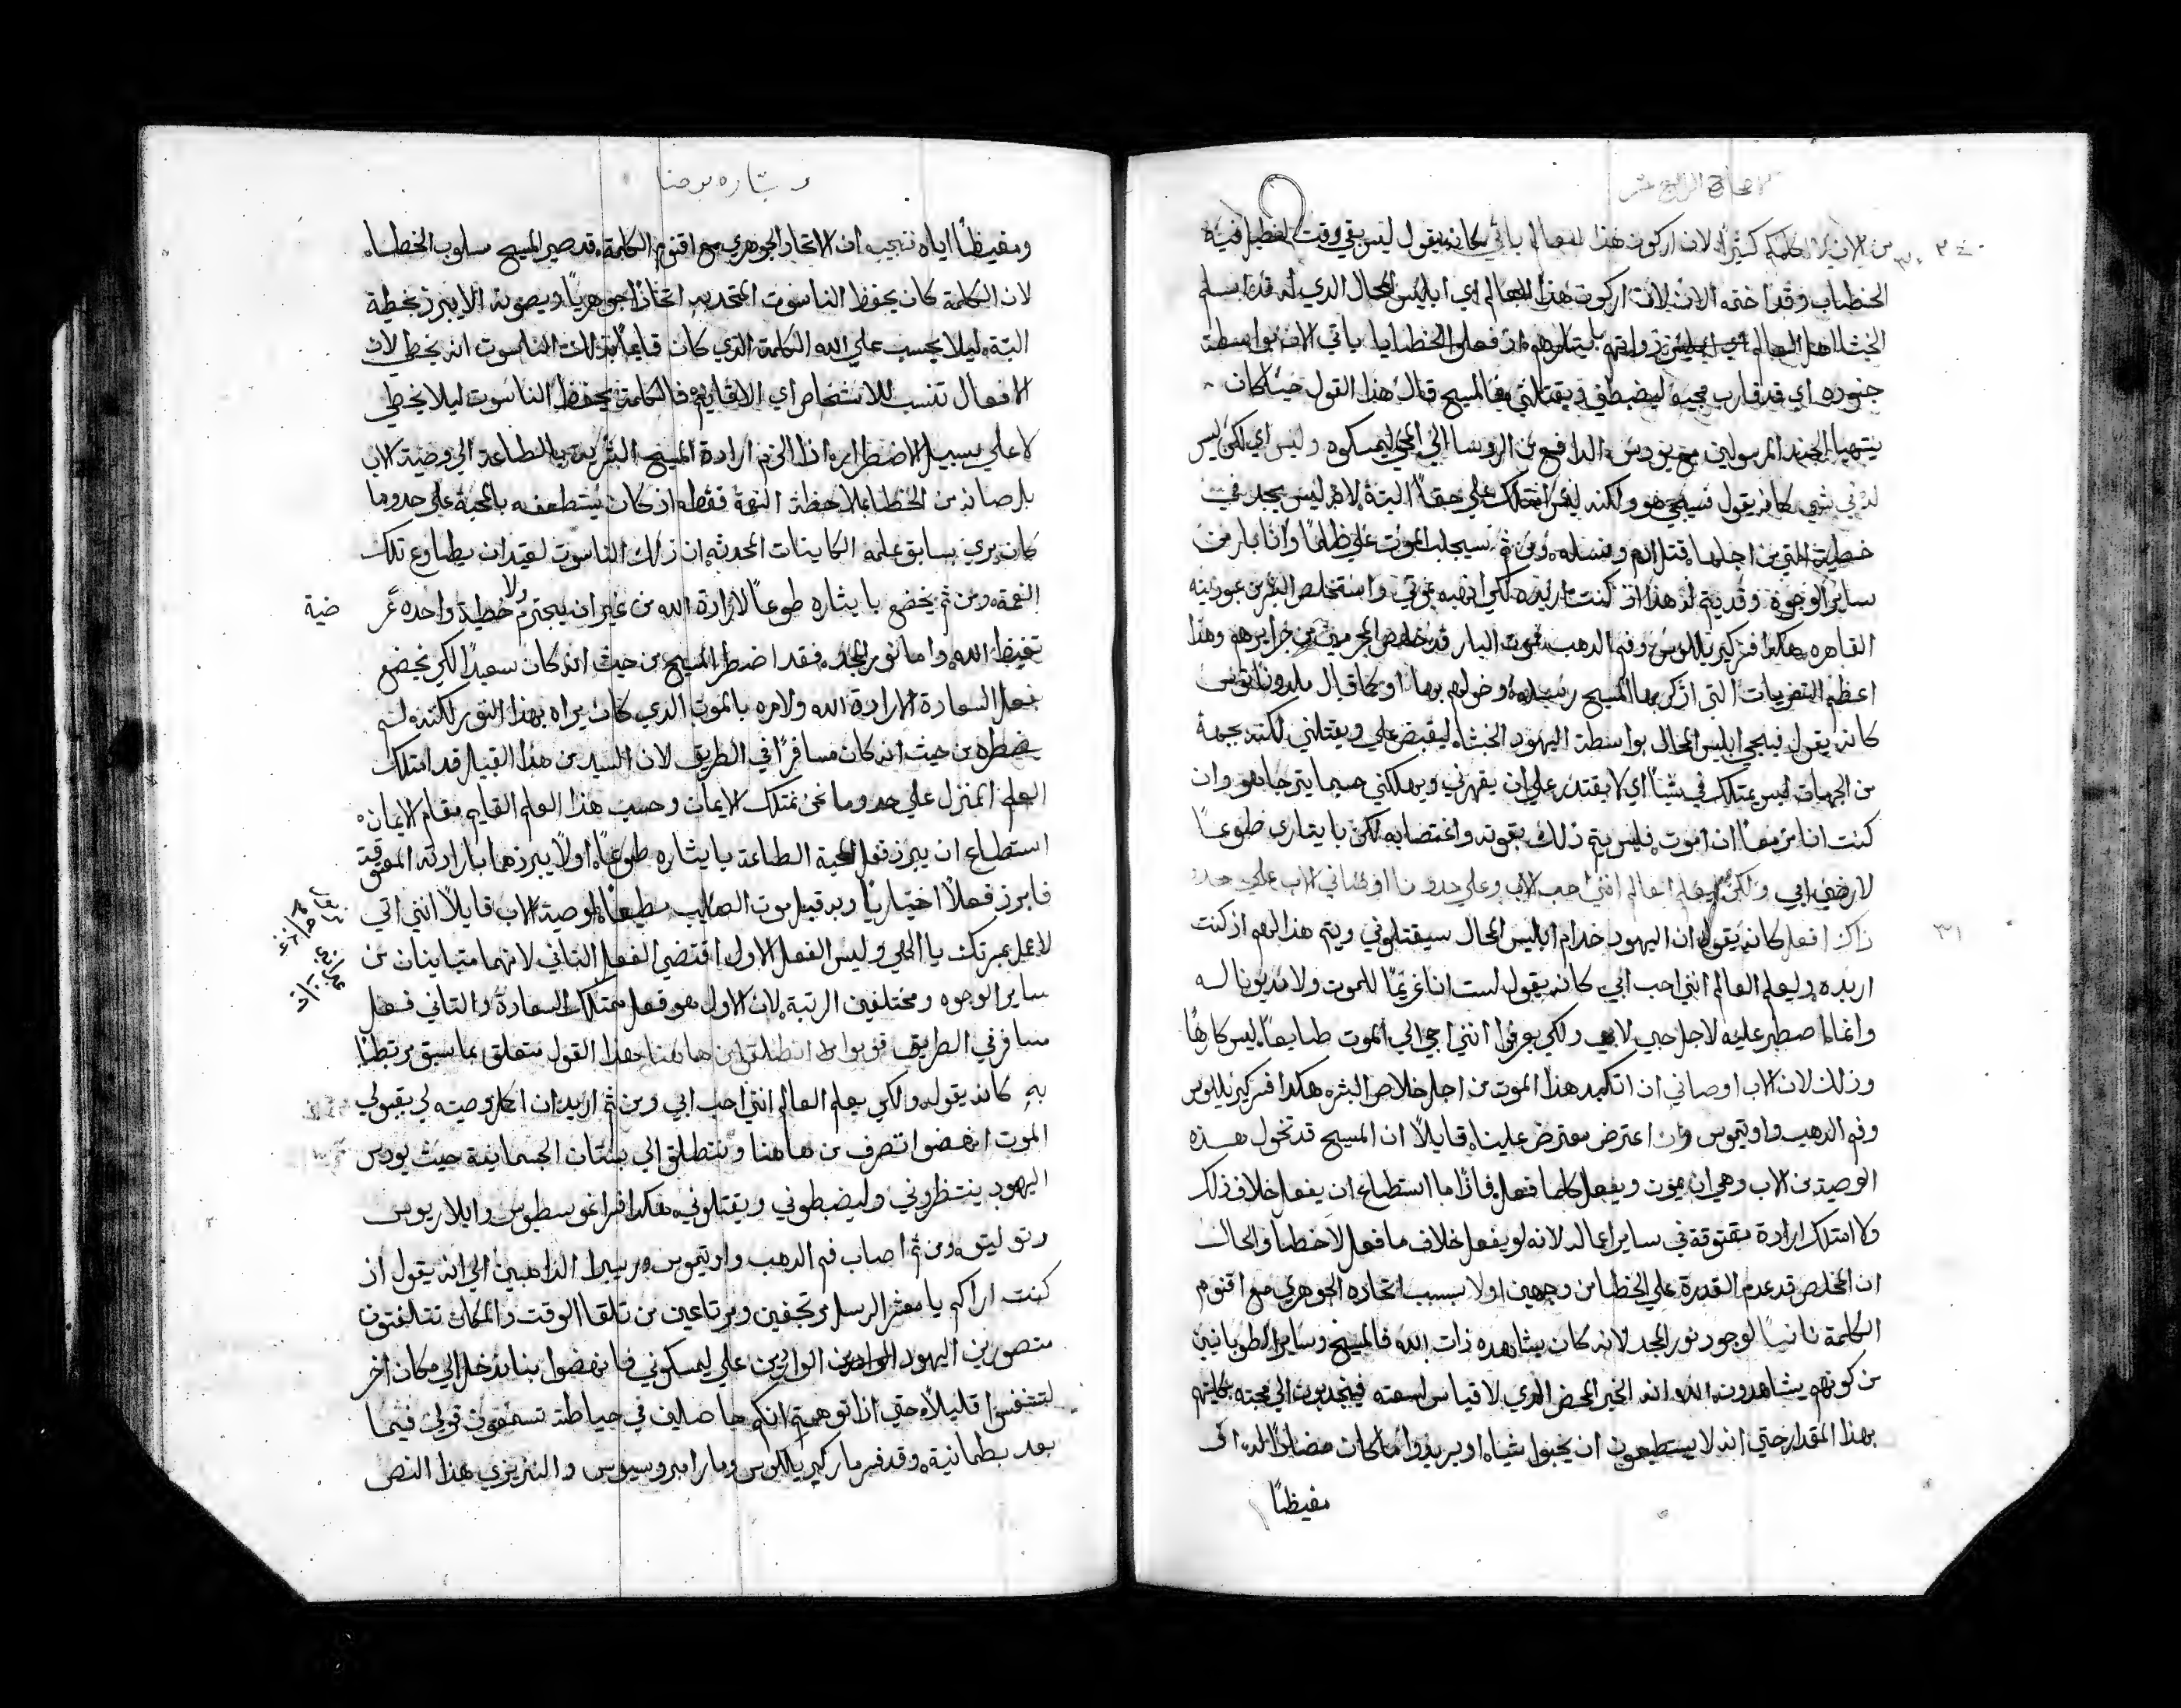 الاصحاح الرابع عشر
٣٠ من الان لا اكلمكم كثيرًا لان اركون هذا العالم ياتي كانه يقول ليس بقي وقت لفظيل فيه
الخطاب وقد اختمه الان لان اركون هذا العالم اي ابليس المحال الذي له قد اسلم
جنوده اي قد قارب مجيه ليضبطني ويقتلني فالمسيح قال هذا القول حينما كان
يتهيا الجند المرسولين مع يودس الدافع من الروسا الي المجي ليمسكوه وليس اي لكن ليس
له في شي كانه يقول فسيجي هو ولكنه ليس يمتلك علي حقًا البتة لانه ليس يجد في
خطية التي من اجلها قتل ادم ونسله ومن ثم سيجلب الموت علي ظلمًا وانا بار من
ساير الوجوه وقد يتم له هذا اذ كنت اريده لكي اذهب بموتي واستخلص البشر من عبوديته
القاهره هكذا فسر كيرللوس وفم الدهب بموت البار قد خلص المجرمين من جرايرهم وهذا
اعظم التعزيات التي اذكر بها المسيح رسله وخولهم بها او كما قال ملدوناتوس
كانه يقول فيجي ابليس المحال بواسطة اليهود الخبثا ليقبض علي ويقتلني لكنه بجهة
من الجهات ليس يمتلك في شيًا اي لا يقتدر علي ان يقهرني ويهلكني حسبما يترجا هو وان
كنت انا مزمعًا ان اموت فليس يتم ذلك بقوته واغتصابه لكن بايثاري طوعًا
٣١ لارضي ابي ولكن ليعلم العالم انني احب الاب وعلي حدو ما اوصاني الاب علي حدو
ذاك افعل كانه يقول ان اليهود خدام ابليس المحال سيقتلوني ويتم هذا لهم اذ كنت
اريده وليعلم العالم انني احب ابي كانه يقول لست انا غريمًا للموت ولا مديونا له
وانما اصطبر عليه لاجل حبي لابي ولكي يعرفوا انني اجي الي الموت طايعًا ليس كارهًا
وذلك لان الاب اوصاني ان اتكبد هذا الموت من اجل خلاص البشر هكذا فسر كيرللوس
وفم الدهب واوتيموس وان اعترض معترض علينا قايلًا ان المسيح قد تخول هذه
الوصية من الاب وهي ان يموت ويفعل كلما فعل فاذًا ما استطاع ان يفعل خلاف ذلك
ولا امتلك ارادة معتوقة في ساير اعماله لانه لو يفعل خلاف ما فعل لاخطا والحال
ان المخلص قد عدم القدرة علي الخطا من وجهين اولا بسبب اتحاده الجوهري مع اقنوم
الكلمة ثانيًا لوجود نور المجد لانه كان يشاهده ذات الله فالمسيح وساير الطوبانيين
من كونهم يشاهدون الله انه الخير المحض الذي لا قياس لسعته فينجدبون الي محبته بكليتهم
بهذا المقدار حتي انه لا يستطيعون ان يحبوا شيا او يريدوا ما كان مضادًا له او
مغيظًا
بشاره يوحنا
ومغيظًا اياه نجيب ان الاتحاد الجوهري مع اقنوم الكلمة قد صير المسيح مسلوب الخطا
لان الكلمة كان يحفظ الناسوت المتحد به اتحادًا جوهريًا ويصونه الا يبرز خطية
البتة ليلا يحسب علي الله الكلمة الذي كان قايمًا بذلك الناسوت انه يخطي لان
الافعال تنسب للاشخاص اي الاقانيم فالكلمة يحفظ الناسوت ليلا يخطي
لا علي سبيل الاضطرار اذ الزم ارادة المسيح البشرية بالطاعة الي وصية الاب
بل صانه من الخطا بملاحظة النعمة فقط اذ كان يستعطفه بالمحبة علي حدو ما
كان يري بسابق علمه الكاينات المحدثه ان ذلك الناسوت لعتيد ان يطاوع تلك
النعمة ومن ثم يخضع بايثاره طوعًا لارادة الله من غير ان يجترم ولا خطية واحده عرضية
تغيظ الله واما نور المجد فقد اضطر المسيح من حيث انه كان سعيدًا لكي يخضع
بفعل السعادة لارادة الله ولامره بالموت الذي كان يراه بهذا النور لكنه لم
يضطره من حيث انه كان مسافرًا في الطريق لان السيد من هذا القبيل قد امتلك
العلم المنزل علي حدو ما نحن نمتلك الايمان وحسب هذا العلم القايم مقام الايمان
استطاع ان يبرز فعل المحبة الطاعة بايثاره طوعًا اولا يبرزهما بارادته المعتوقة
فابرز فعلًا اختياريًا وبه قبل موت الصليب مطيعًا لوصية الاب قايلًا انني اتي
لاعمل بمسرتك يا الاهي وليس الفعل الاول اقتضي الفعل التاني لانهما متباينان من
ساير الوجوه ومختلفين الرتبة لان الاول هو فعل ممتلك السعادة والتاني فعل
مسافر في الطريق قوموا بنا ننطلق من هاهنا هذا القول متعلق بما سبق مرتبطًا
به كانه يقول ولكي يعلم العالم انني احب ابي ومن ثم اريد ان اكمل وصيته لي بقبولي
الموت انهضوا نصرف من هاهنا وننطلق الي بستان الجسمانية حيث يودس
اليهود ينتظروني وليضبطوني ويقتلوني هكذا فسر اغوسطوس وايلاريوس
وتوليتو ومن ثم اصاب فم الدهب واوتيموس وريبيرا الذاهبين الي انه يقول اذ
كنت اراكم يا معشر الرسل مرتجفين ومرتاعين من تلقا الوقت والمكان تتلفتون
متصورين اليهود الواردين علي ليمسكوني فانهضوا بنا ندخل الي مكان اخر
لتتنفسوا قليلًا حتي اذا توهمتم انكم حاصلين في حياطة تسمعون قولي فيما
بعد بطمانية وقد فسر مار كيرللوس ومار امبروسيوس والنزينزي هذا النص